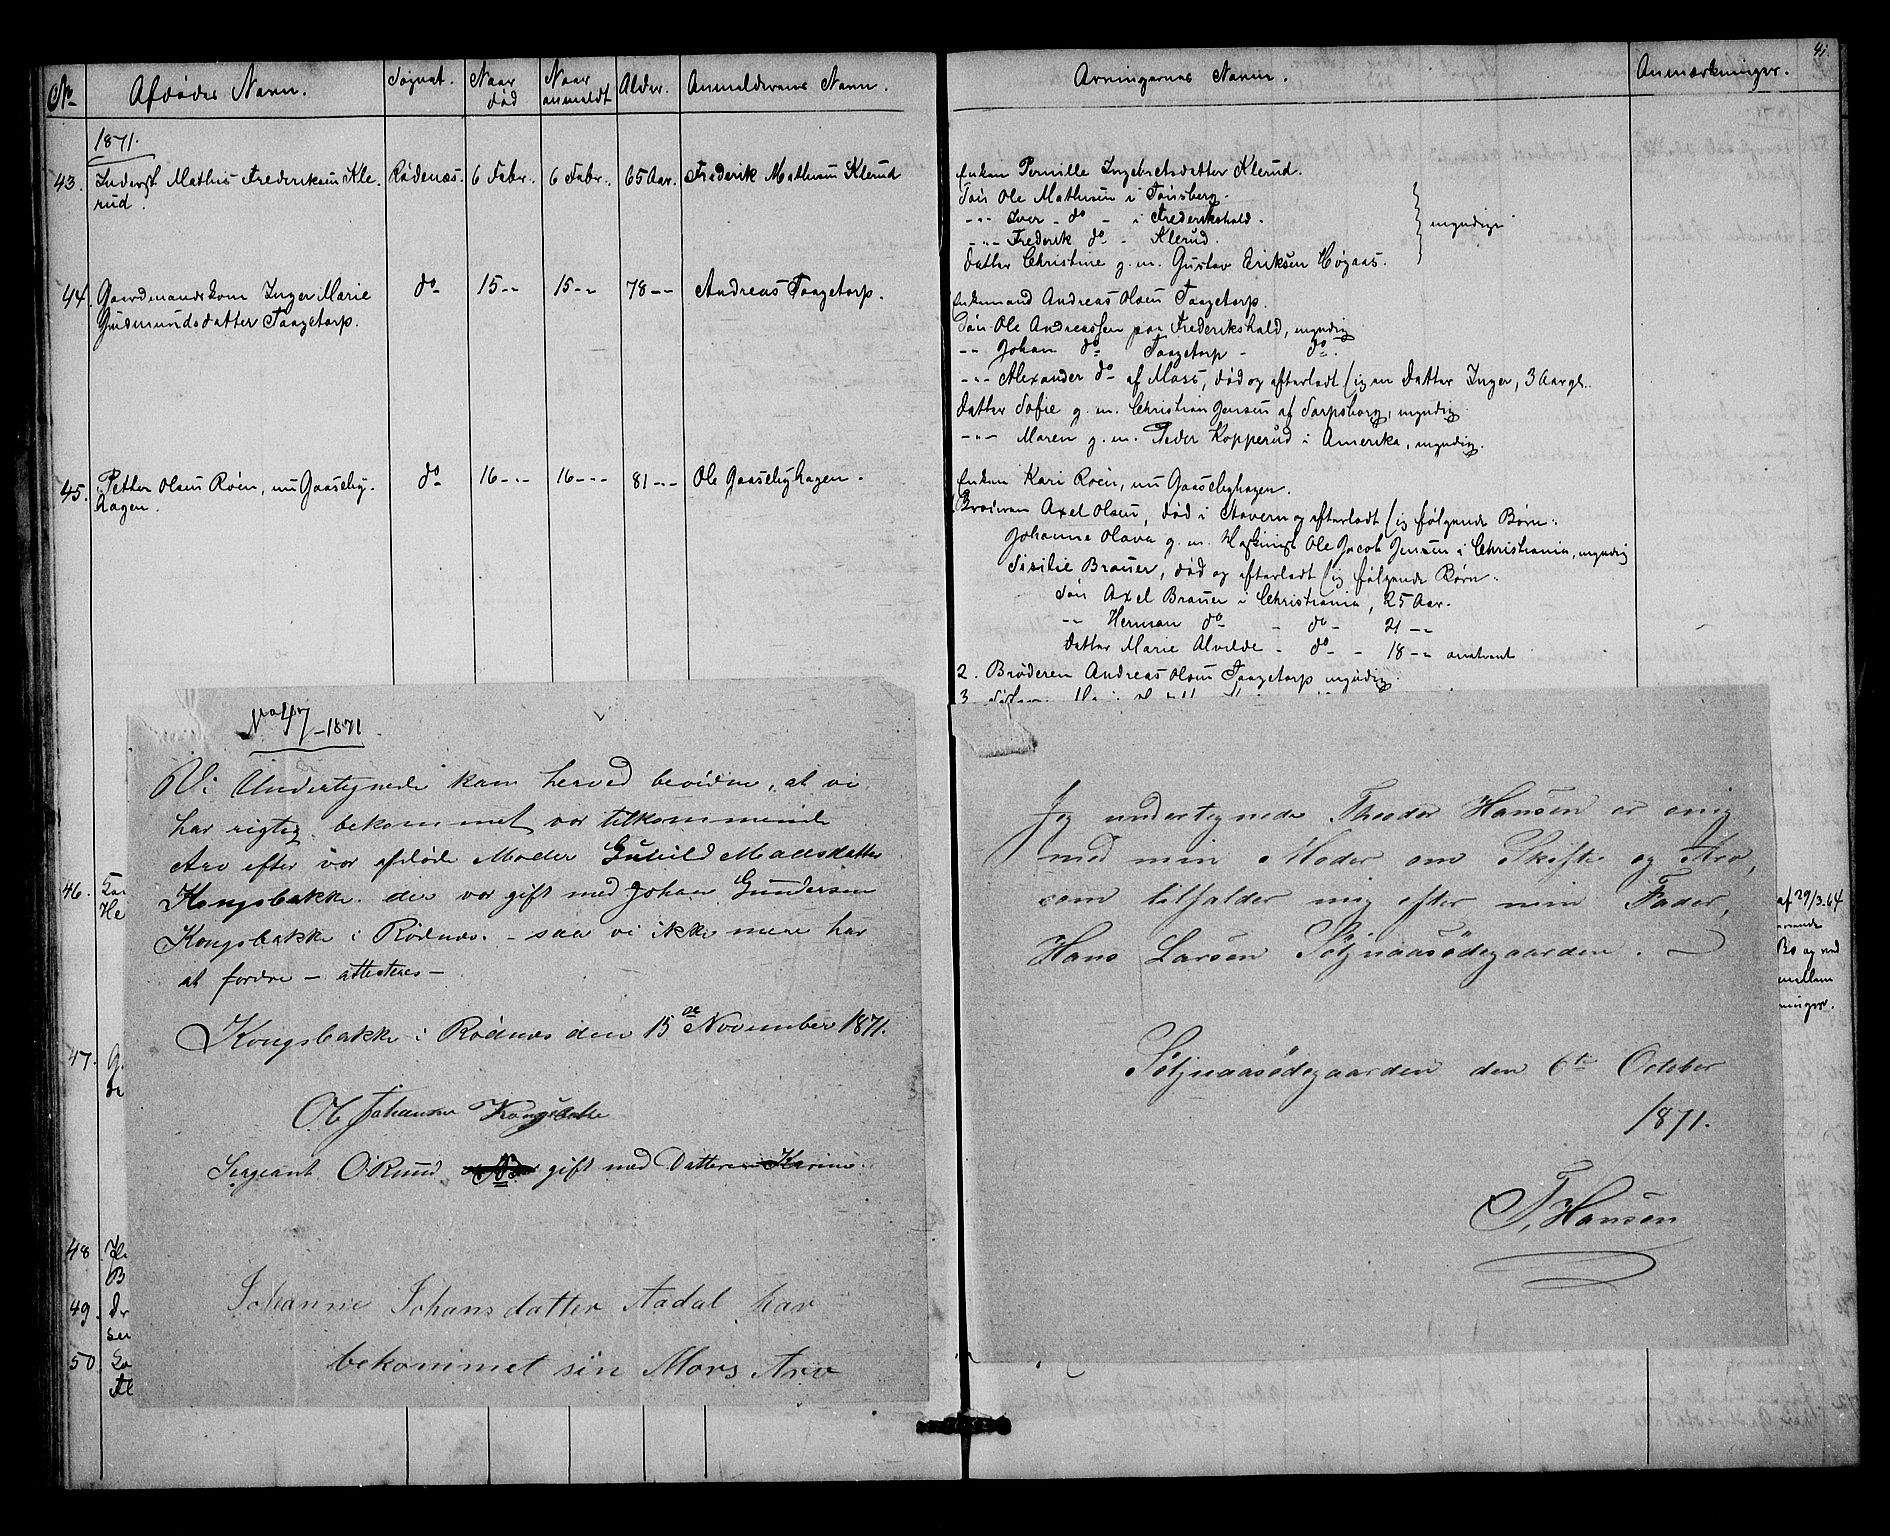 No. Afdødes Navn. Sognet. Naar død Naar anmeldt Alder. Anmelderens Navn.
1871.
43. Inderst Mathis Frederiksen Kle-
rud. Rødenæs 6 Febr. 6 Febr. 65 Aar. Frederik Mathisen Klerud
44. Gaardmandskone Inger Marie
Gudmundsdatter Taagetorp. do 15 -"- 15 -"- 78 -"- Andreas Taagetorp.
45. Petter Olsen Roen, nu Gaaselig-
hagen. do 16 -"- 16 -"- 81 -"- Ole Gaaselighagen.
46.
He
47.
48
B
49.
sen
50
No 47 - 1871
Vi Undertegnede kan herved bevidne, at vi
har rigtig bekommet vor tilkommende
Arv efter vor afdøde Moder Gulild Madsdatter
Kongsbakke der var gift med Johan Gundersen
Kongsbakke i Rødnæs. - saa vi ikke mere har
at fordre - attesteres -
Kongsbakke i Rødnæs den 15de November 1871.
Ole Johansen Kongsbakke
Sergeant O. Ruud gift med Datteren Karine.
Johanne Johansdatter Aadal har
bekommet sin Mors Arv
Arvingernes Navn. Anmærkninger. 41.
Enken Pernille Ingebretsdatter Klerud.
Søn Ole Mathisen i Tønsberg.
-"- Iver do - i Frederikshald.
-"- Frederik do - Klerud. myndige
Datter Christine g. m. Gustav Eriksen Høgaas.
Enkemand Andreas Olsen Taagetorp.
Søn Ole Andreassen paa Frederikshald, myndig
-"- Johan do Taagetorp - do.
-"- Alexander do af Moss, død og efterladt sig en Datter Inger, 3 Aar gl.
Datter Sofie g. m. Christian Jensen af Sarpsborg, myndig
-"- Maren g. m. Peder Kopperud i Amerika, myndig.
Enken Kari Roen, nu Gaaselighagen.
Broderen Axel Olsen, død i Stavern og efterladt sig følgende Børn:
Johanne Olava g. m. Ole Jacob Jensen i Christiania, myndig
Sisilie Brauer, død og efterladt sig følgende Børn:
Søn Axel Brauer i Christiania, 25 Aar.
-"- Herman do - do - 21 -"-
Datter Marie Alvilde - do - 18 -"-
2. Broderen Andreas Olsen Taagetorp myndig.
3.
Jeg undertegnede Theodor Hansen er enig
med min Moder om Skifte og Arv,
som tilfalder mig efter min Fader,
Hans Larsen Søljnaasødegaarden. -
Søljnaasødegaarden den 6te October
1871.
T. Hansen
af 29/3-64
Bo og ved
mellem
ninger.